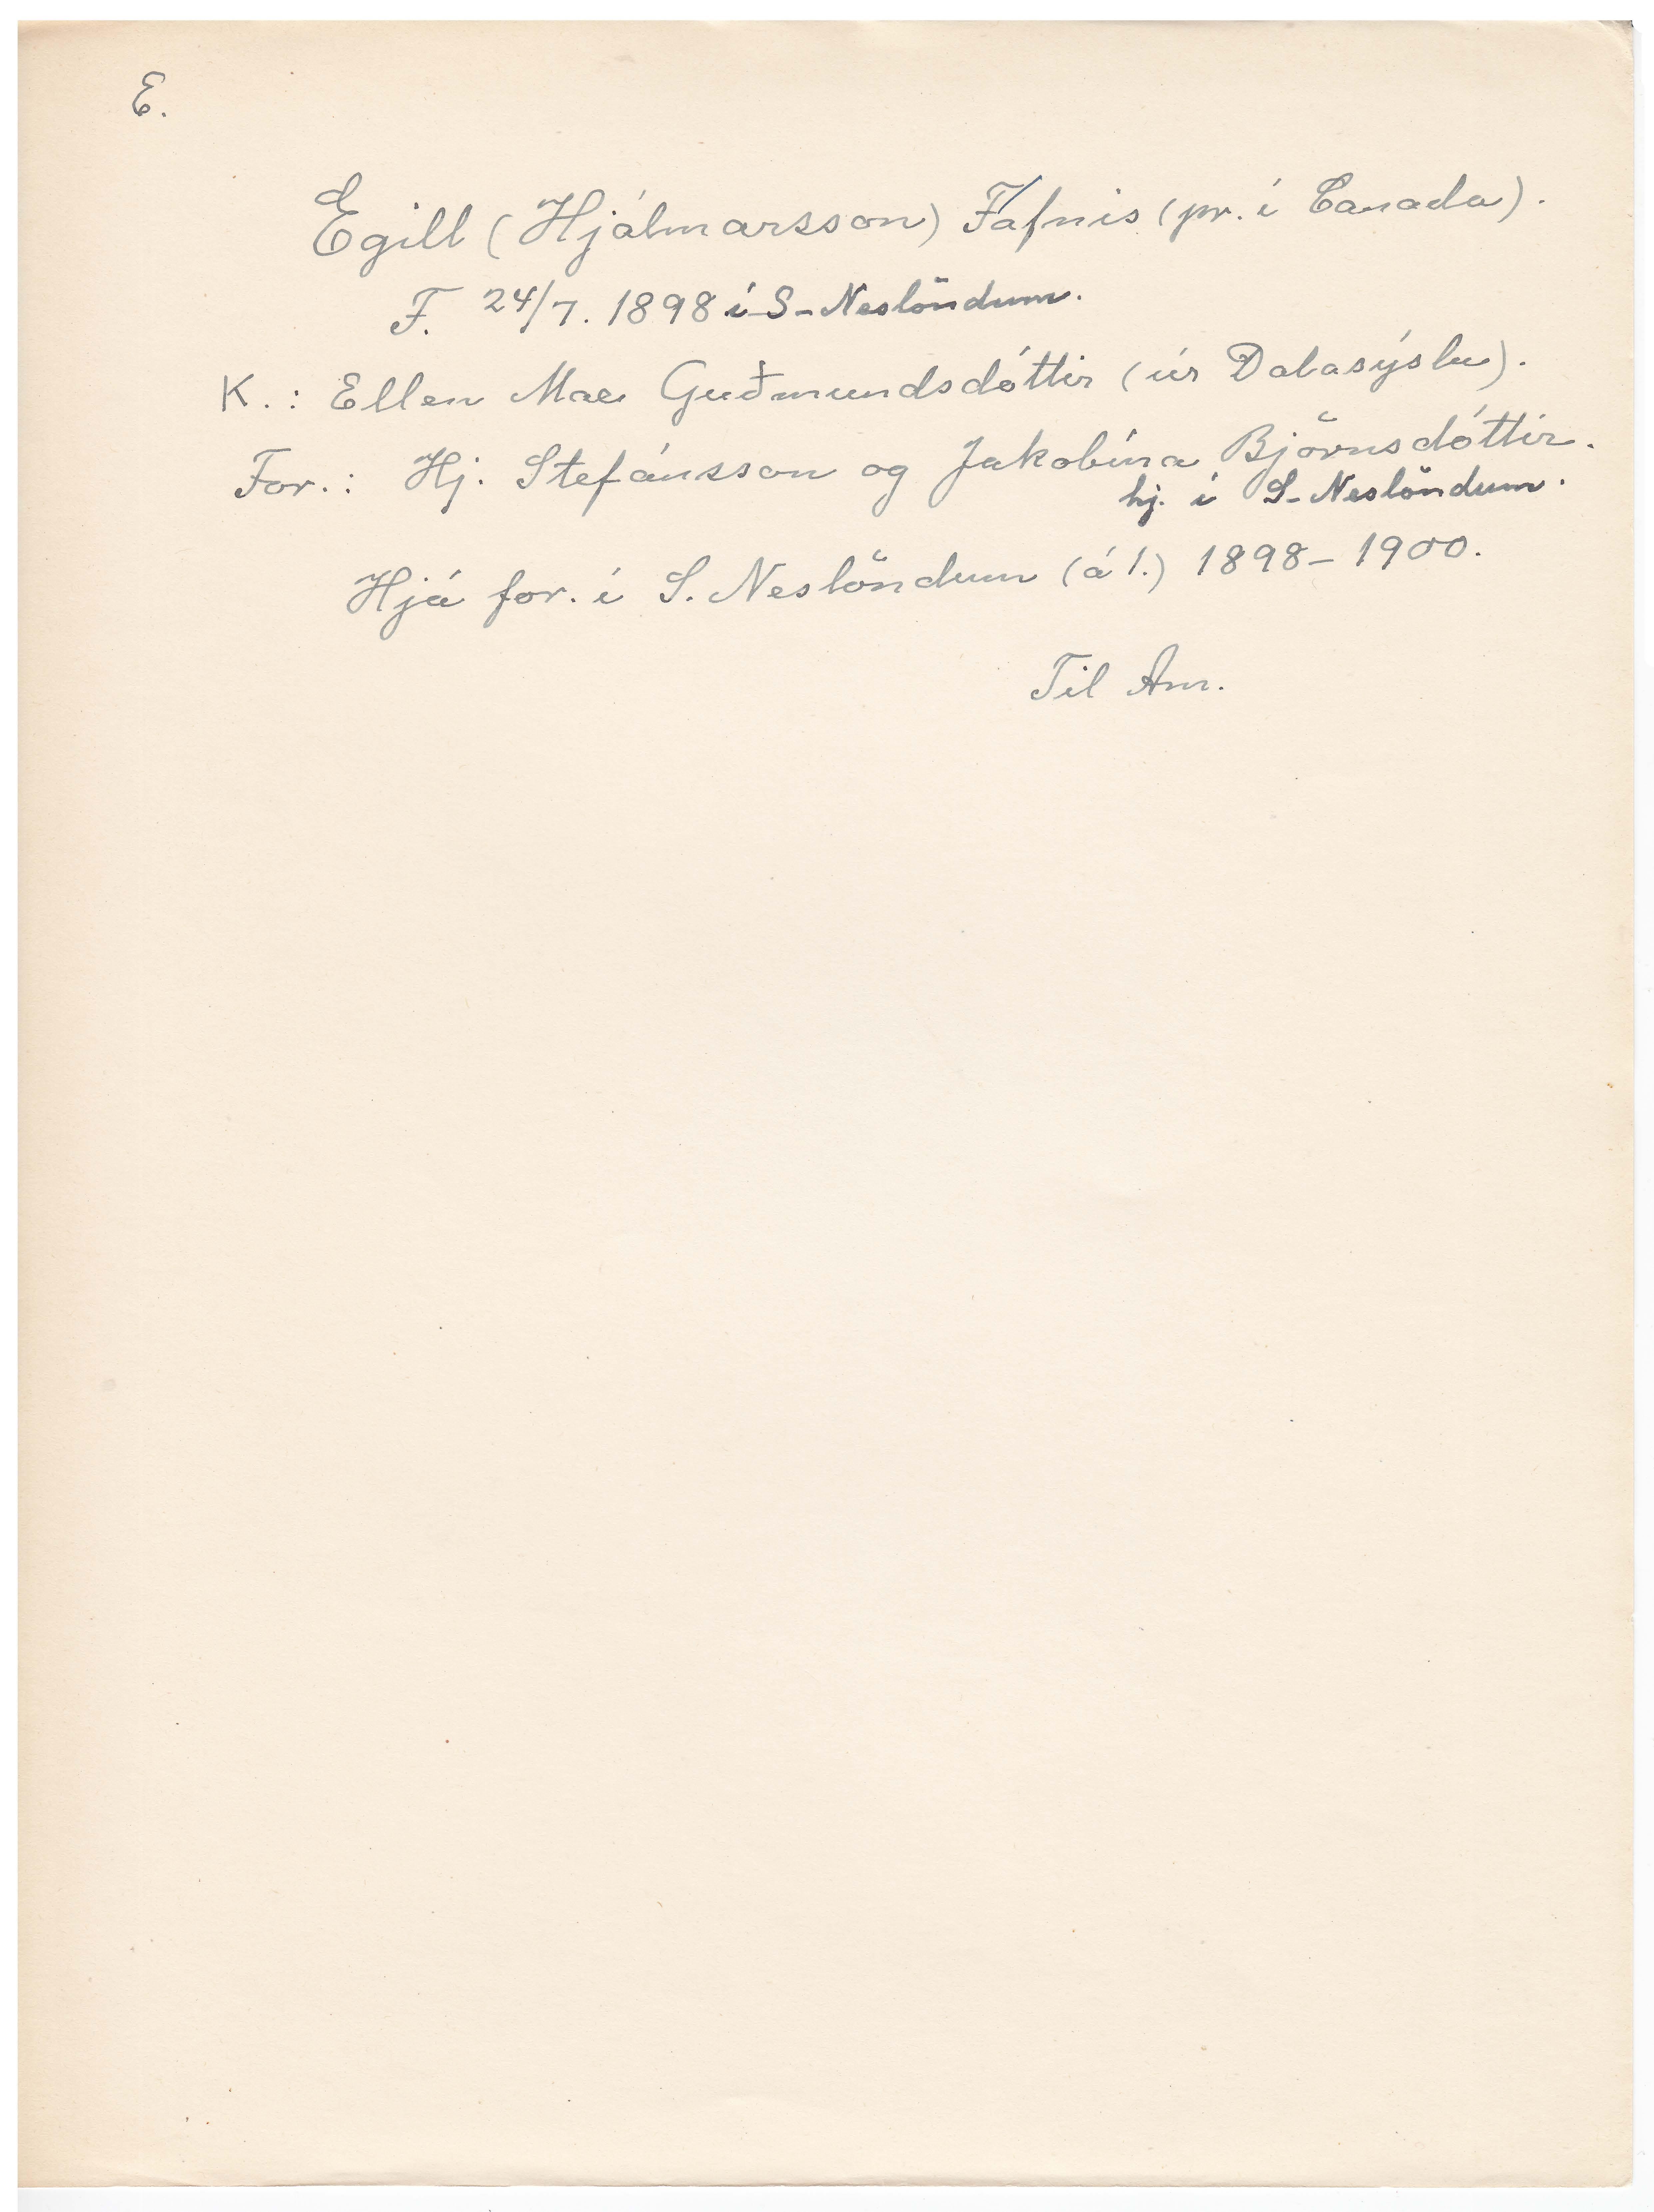 E.
Egill (Hjálmarsson) Fafnis (pr. í Canada).
F. 24/7. 1898 í S-Neslöndum.
K.: Ellen Mae Guðmundsdóttir (úr Dalasýslu).
For.: Hj. Stefánsson og Jakobína Björnsdóttir.
hj. í S-Neslöndum.
Hjá for. í S. Neslöndum (á 1.) 1898-1900.
Til Am.